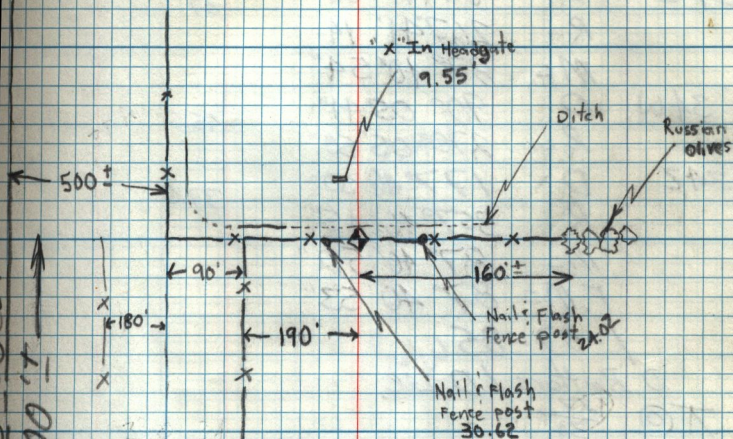 "x" In Headgate
9.55'
Ditch
Russian
Olives
500±
90'
160'±
180'
190'
Nail & Flash
Fence post
24.02
Nail & Flash
Fence post
30.62